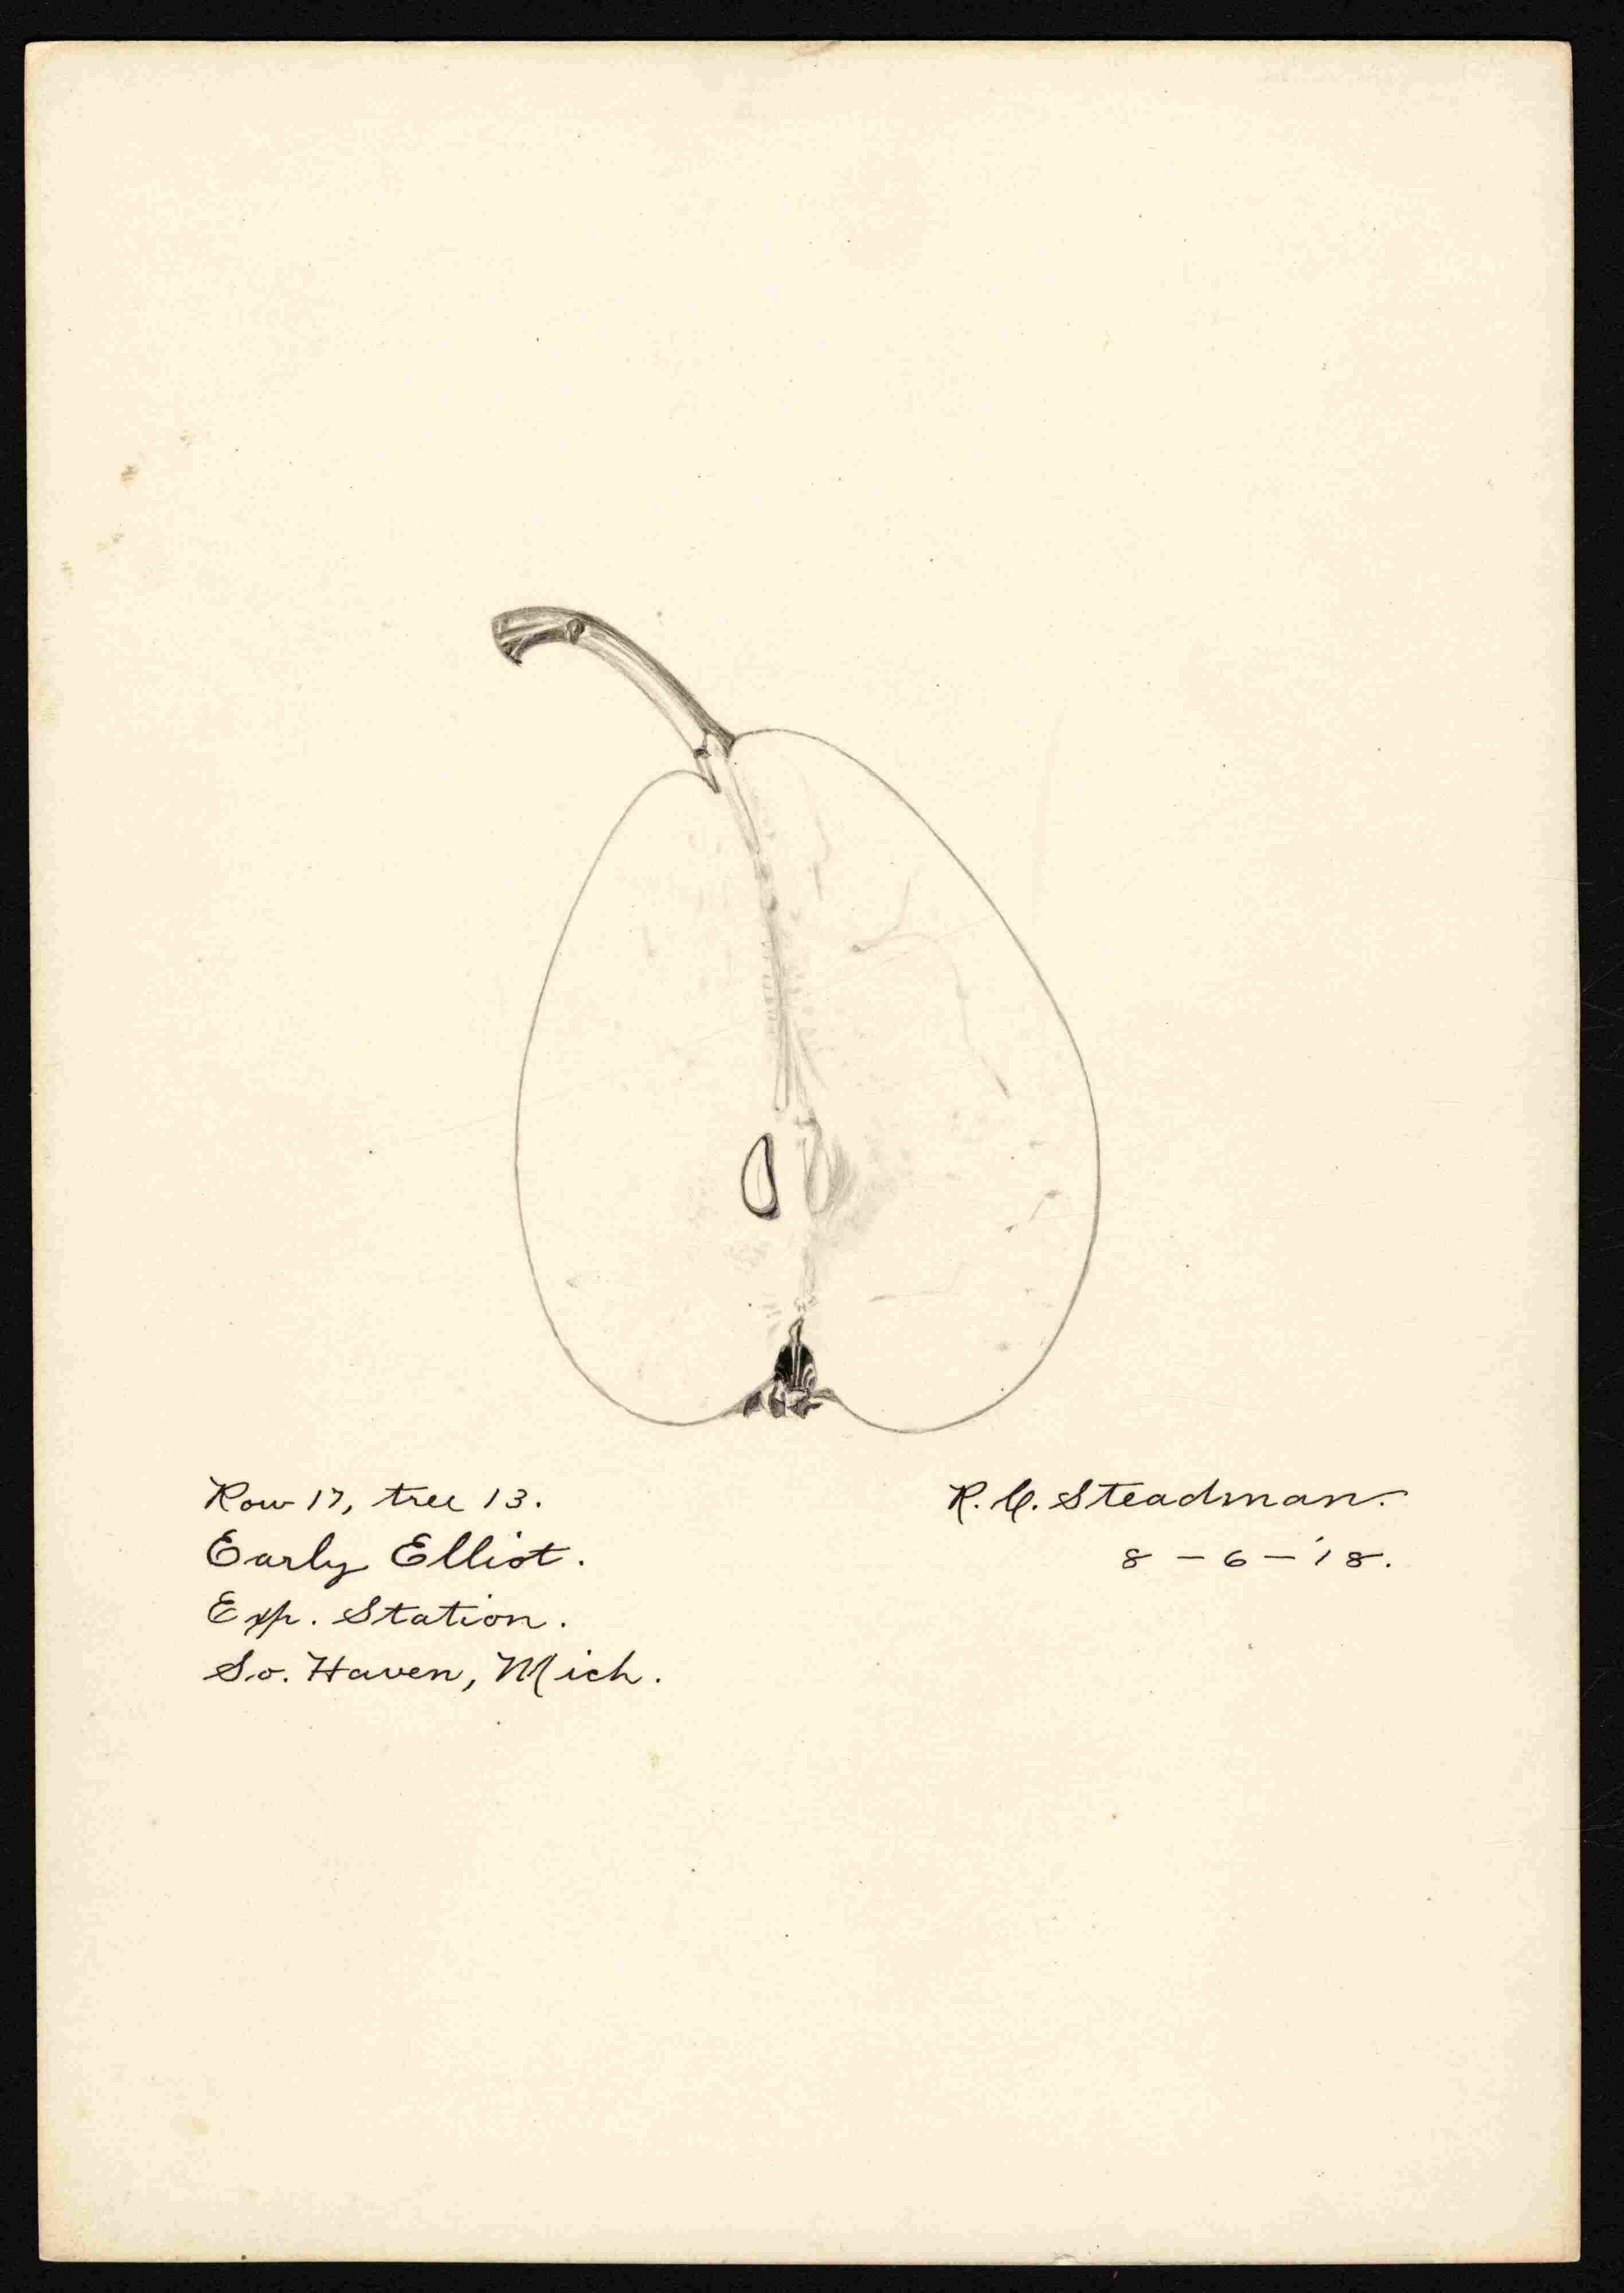 Row 17, tree 13.
Early Elliot.
Exp. Station.
So. Haven, Mich.
R. C. Steadman.
8-6-'18.